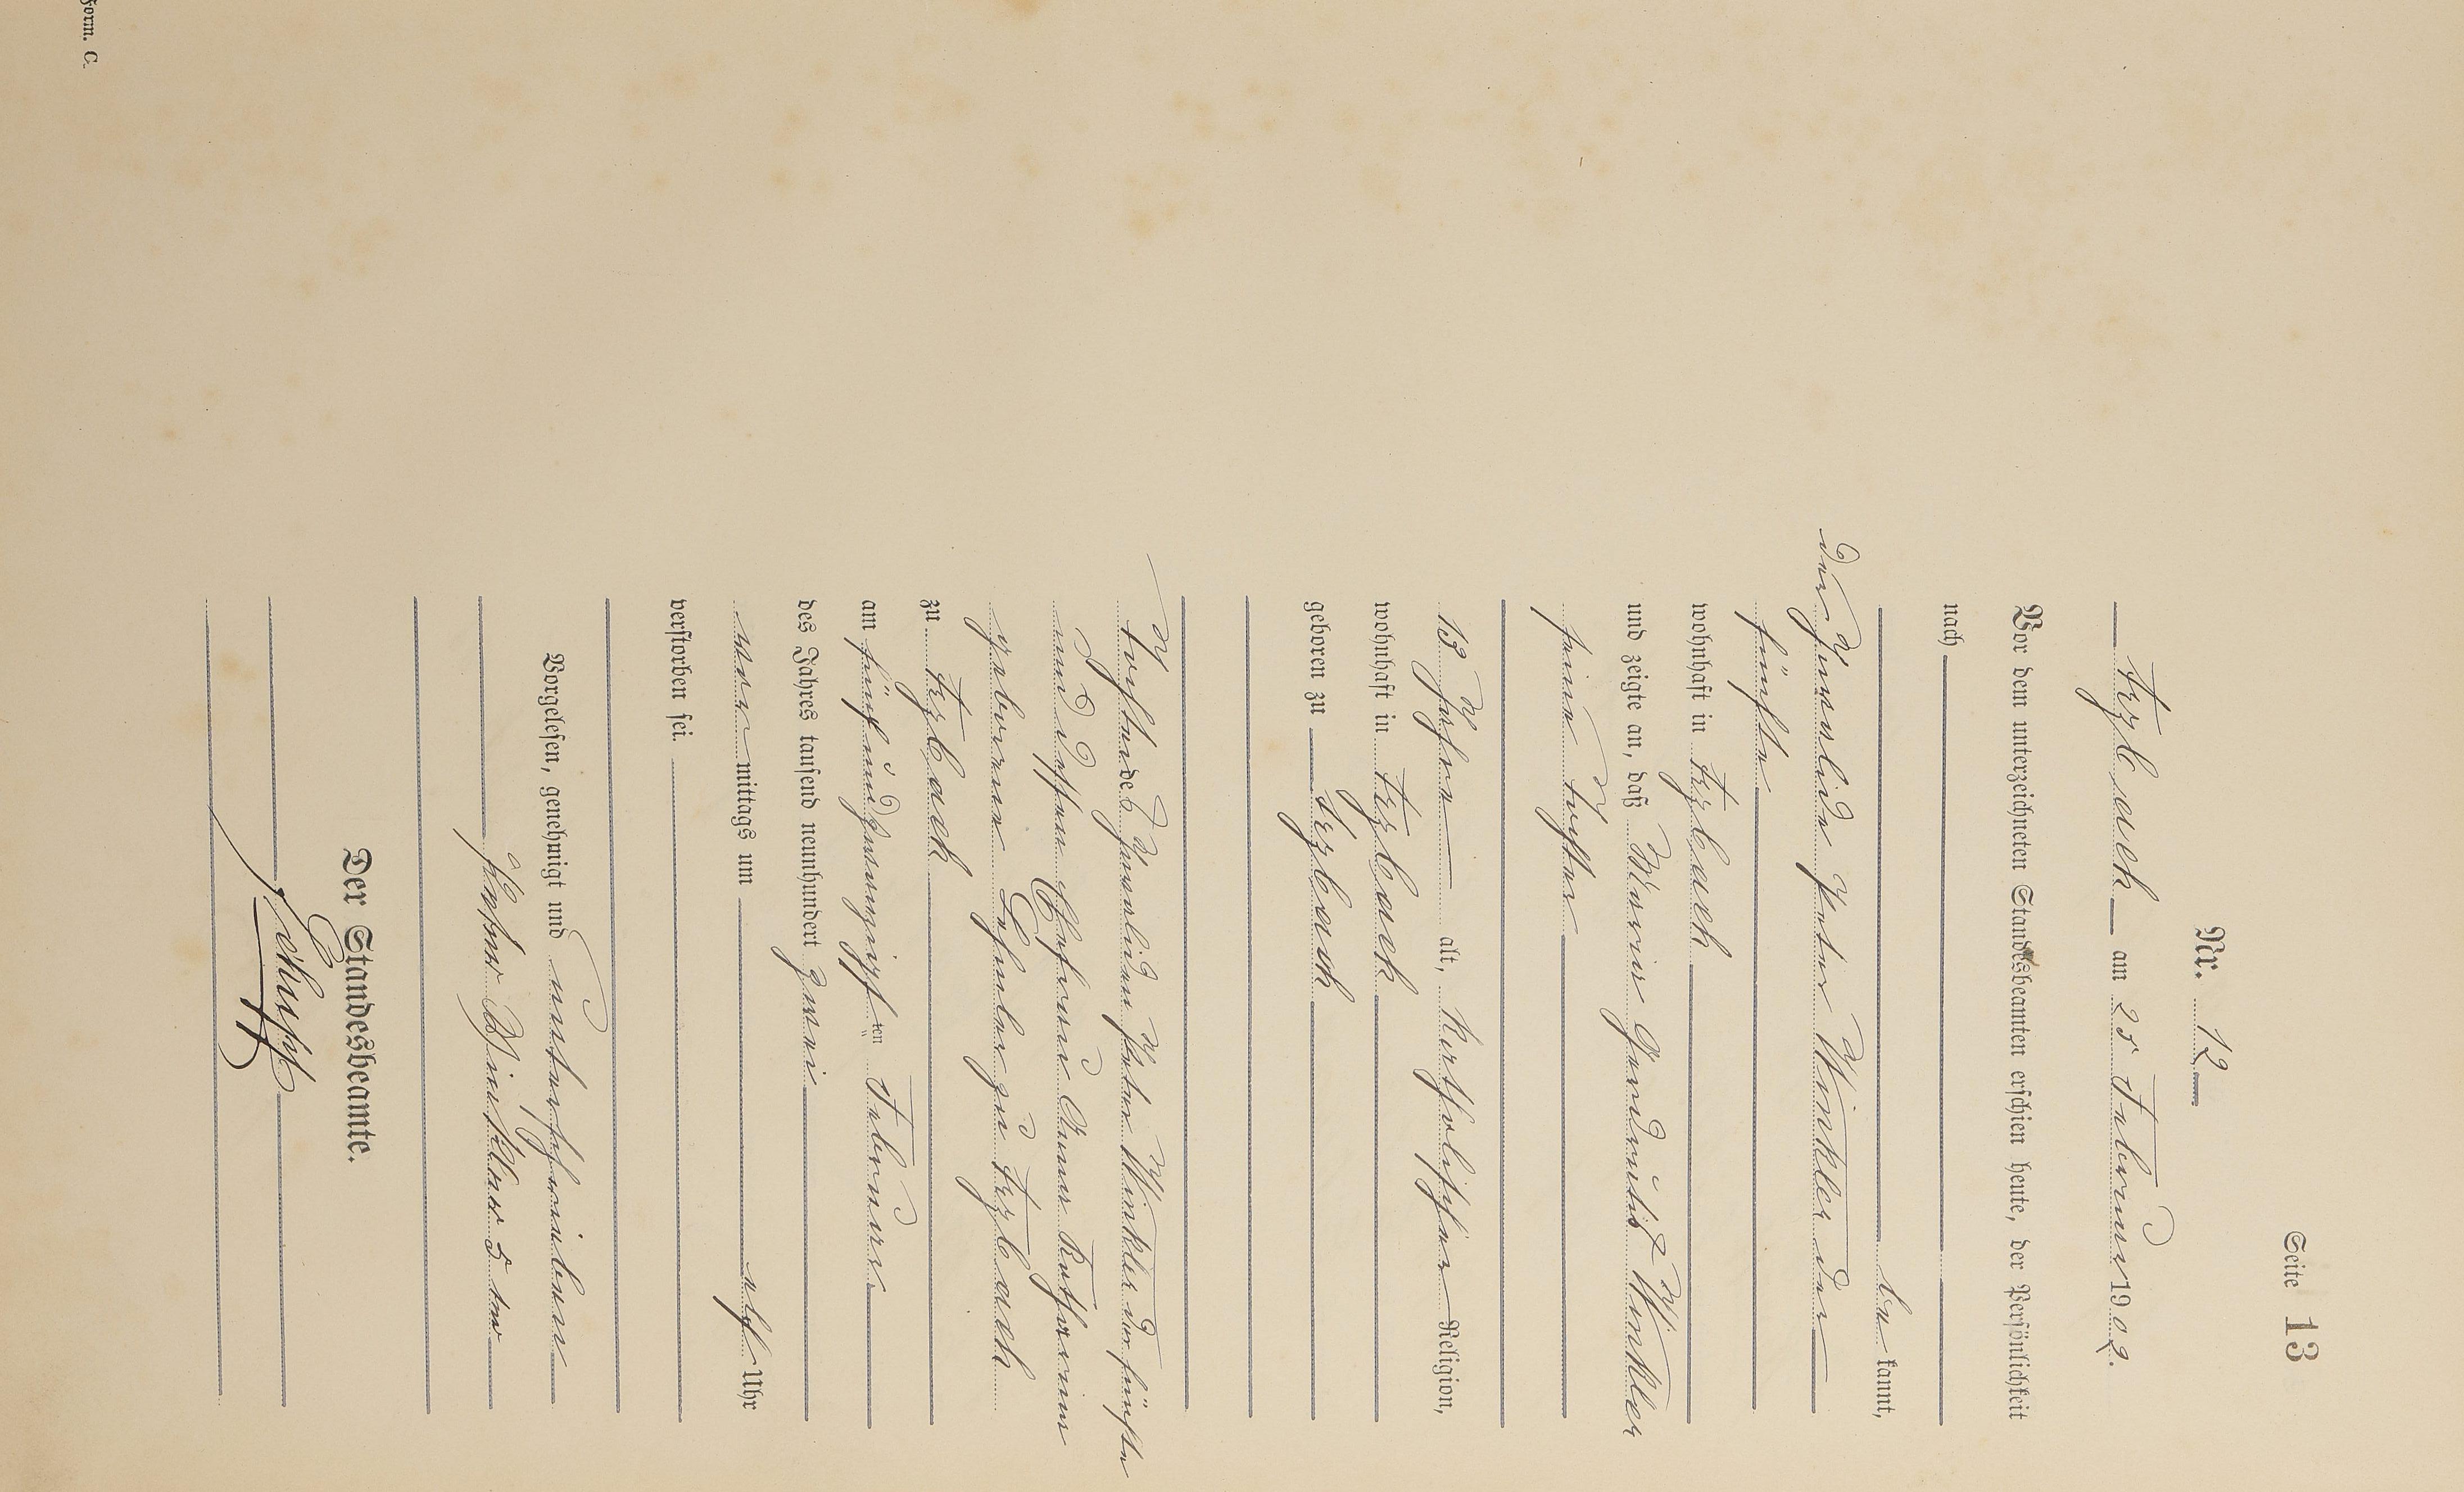 Seite 13
Nr. 12
Erzbach am 25 Februar 1902.
Vor dem unterzeichneten Standesbeamten erschien heute, der Persönlichkeit
nach
be kannt,
der Invalide Peter Winkler der
fünfte
wohnhaft in Erzbach
und zeigte an, daß Maria Gendrutis Winkler
seine Tochter
13 Jahre alt, Katholischer Religion,
wohnhaft in Erzbach
geboren zu Erzbach
Tochter des Invaliden Peter Winkler der fünfte
und dessen Ehefrau Anna Katharina
geborene zu Erzbach
zu Erzbach
am fünfundzwanzigsten Februar
des Jahres tausend neunhundert zwei
vor mittags um elf Uhr
verstorben sei.
Vorgelesen, genehmigt und unterschrieben
Peter Winkler 5 ter
Der Standesbeamte.
Form. C.